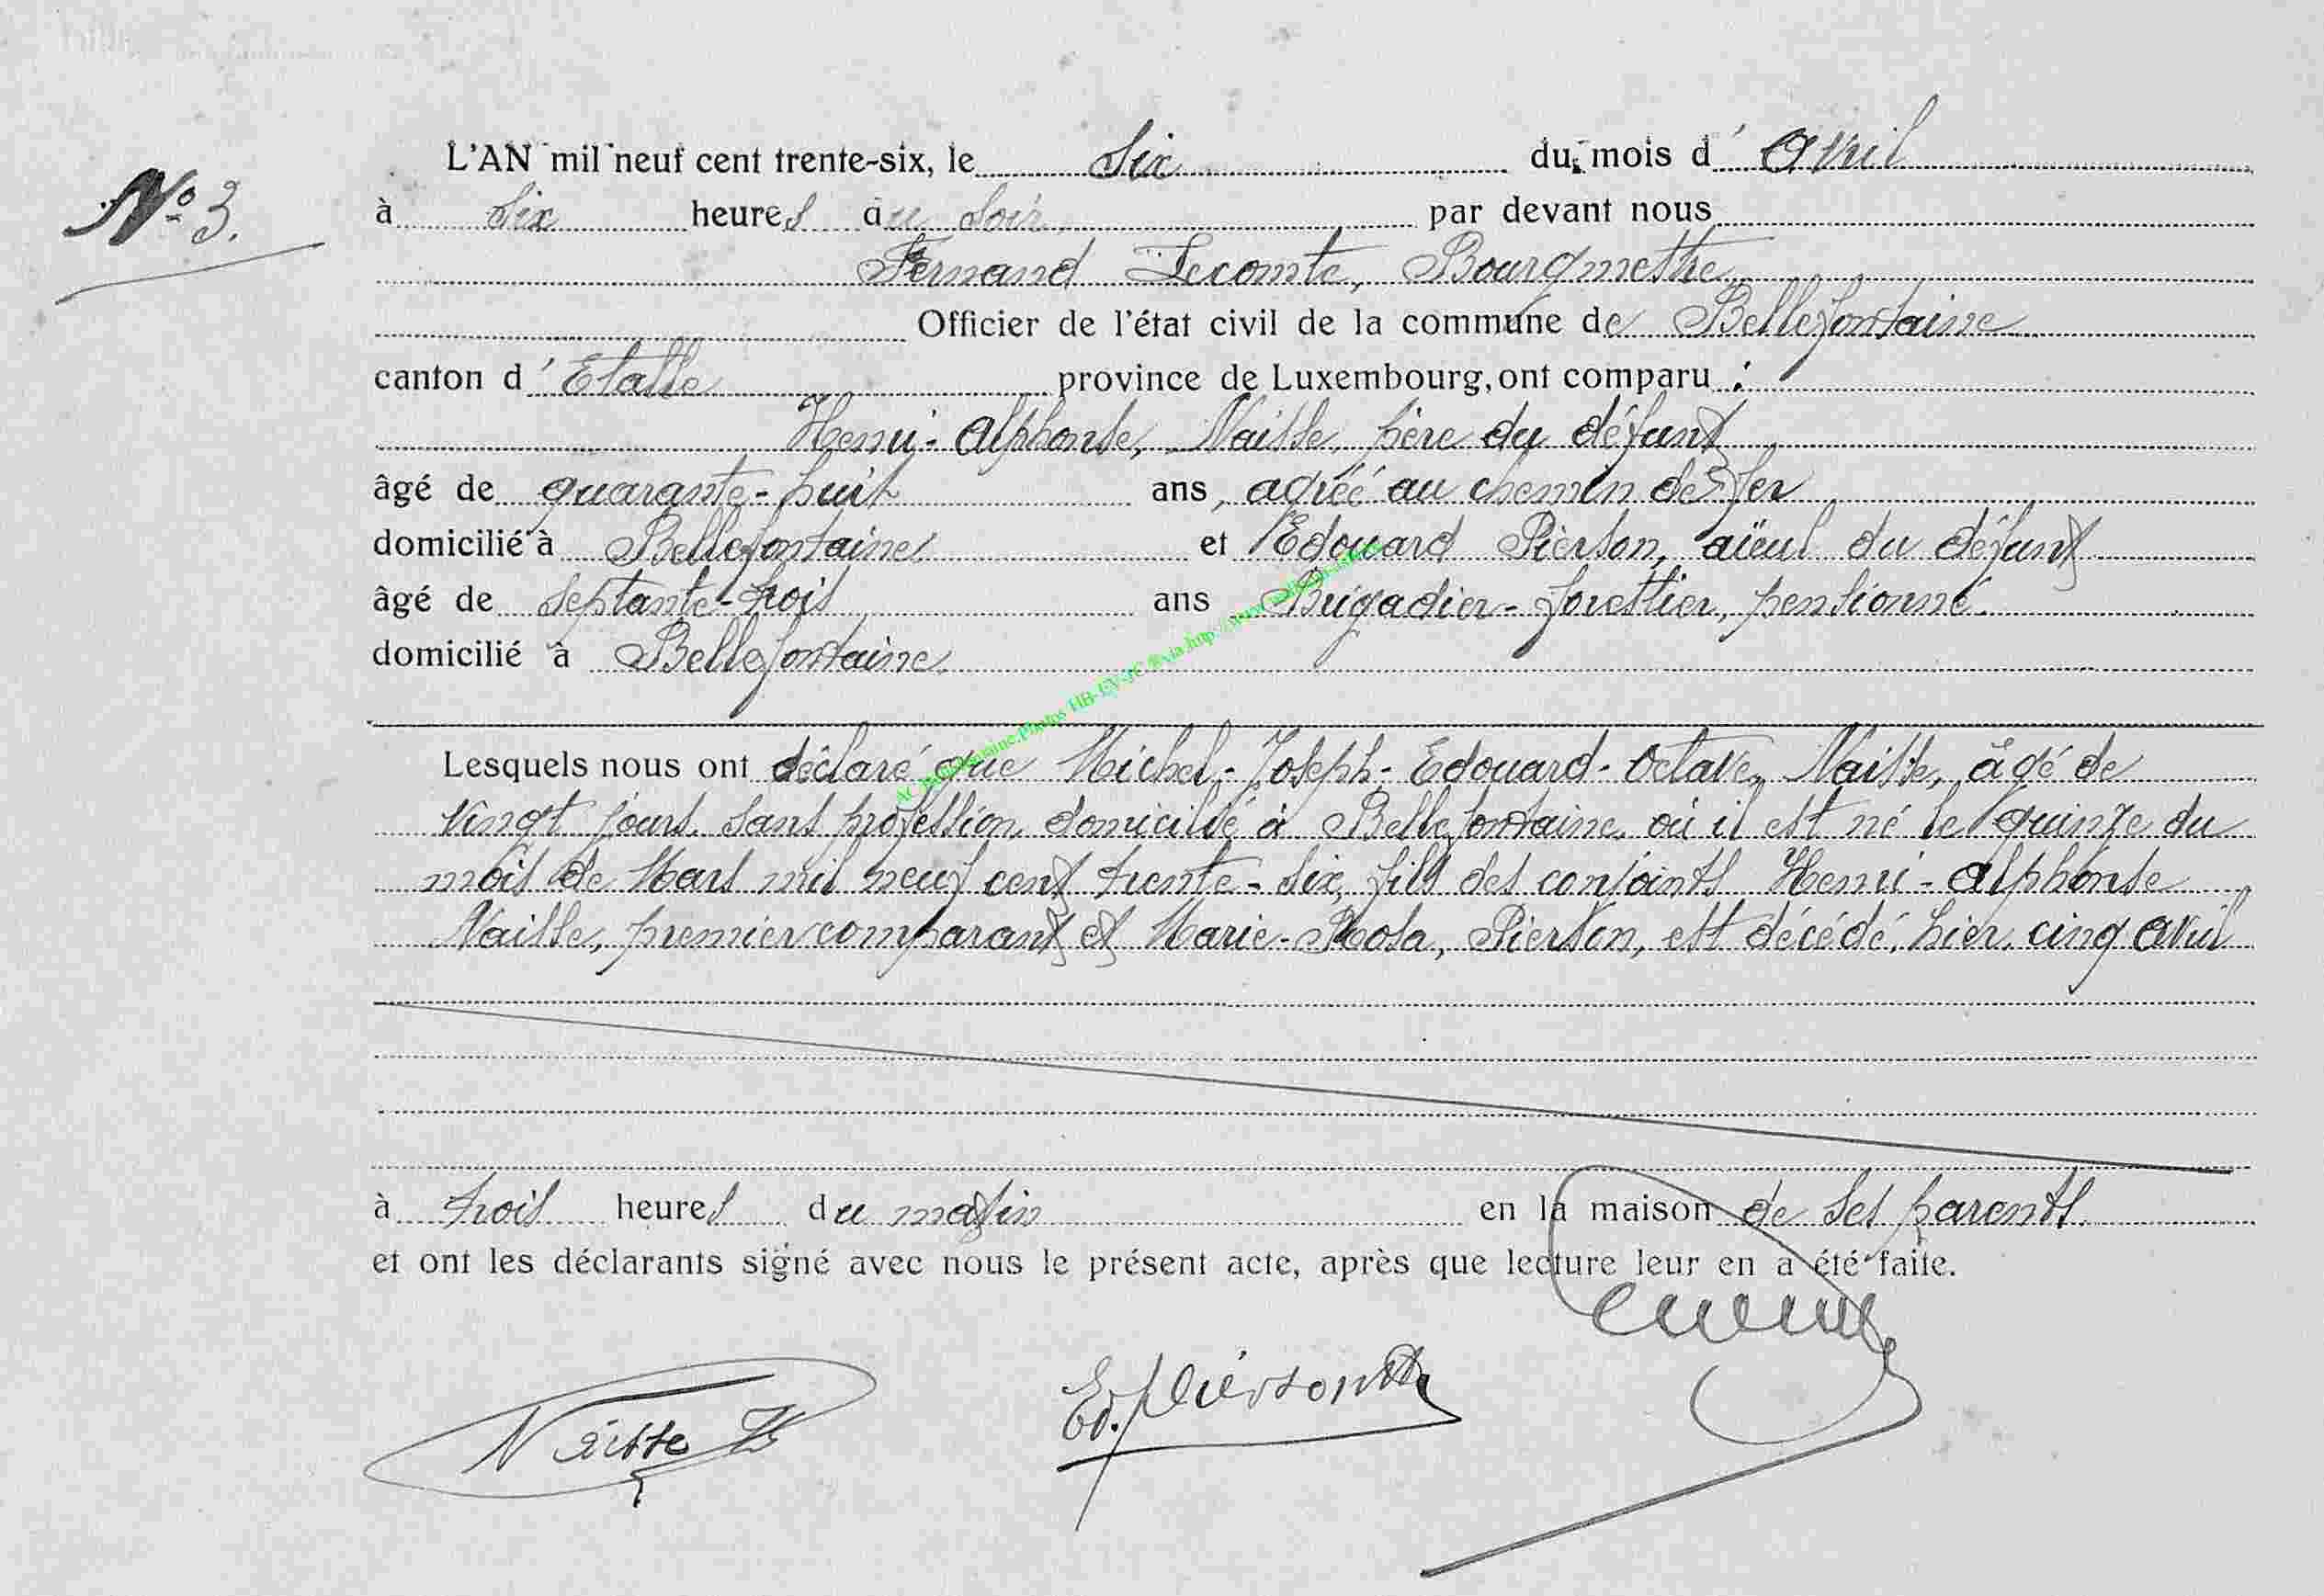 N° 3.
L'AN mil neuf cent trente-six, le Six du mois d'Avril
à Six heures du Soir, par devant nous
Fernand Lecomte, Bourgmestre
Officier de l'état civil de la commune de Bellefontaine
canton d'Etalle province de Luxembourg, ont comparu :
Henri-Alphonse, Naisse, père du défunt
âgé de quarante-huit ans, agréé au chemin de fer
domicilié à Bellefontaine et Edouard Pierson, aïeul du défunt
âgé de septante-trois ans Brigadier-forestier, pensionné.
domicilié à Bellefontaine.
Lesquels nous ont déclaré que Michel-Joseph-Edouard-Octave, Naisse, âgé de
vingt jours, sans profession, domicilié à Bellefontaine, où il est né le quinze du
mois de Mars mil neuf cent trente-six, fils des conjoints Henri-Alphonse
Naisse, premier comparant et Marie-Rosa, Pierson, est décédé, hier, cinq avril
à trois heures du matin en la maison de ses parents.
et ont les déclarants signé avec nous le présent acte, après que lecture leur en a été faite.
Naisse H
Ed. Pierson